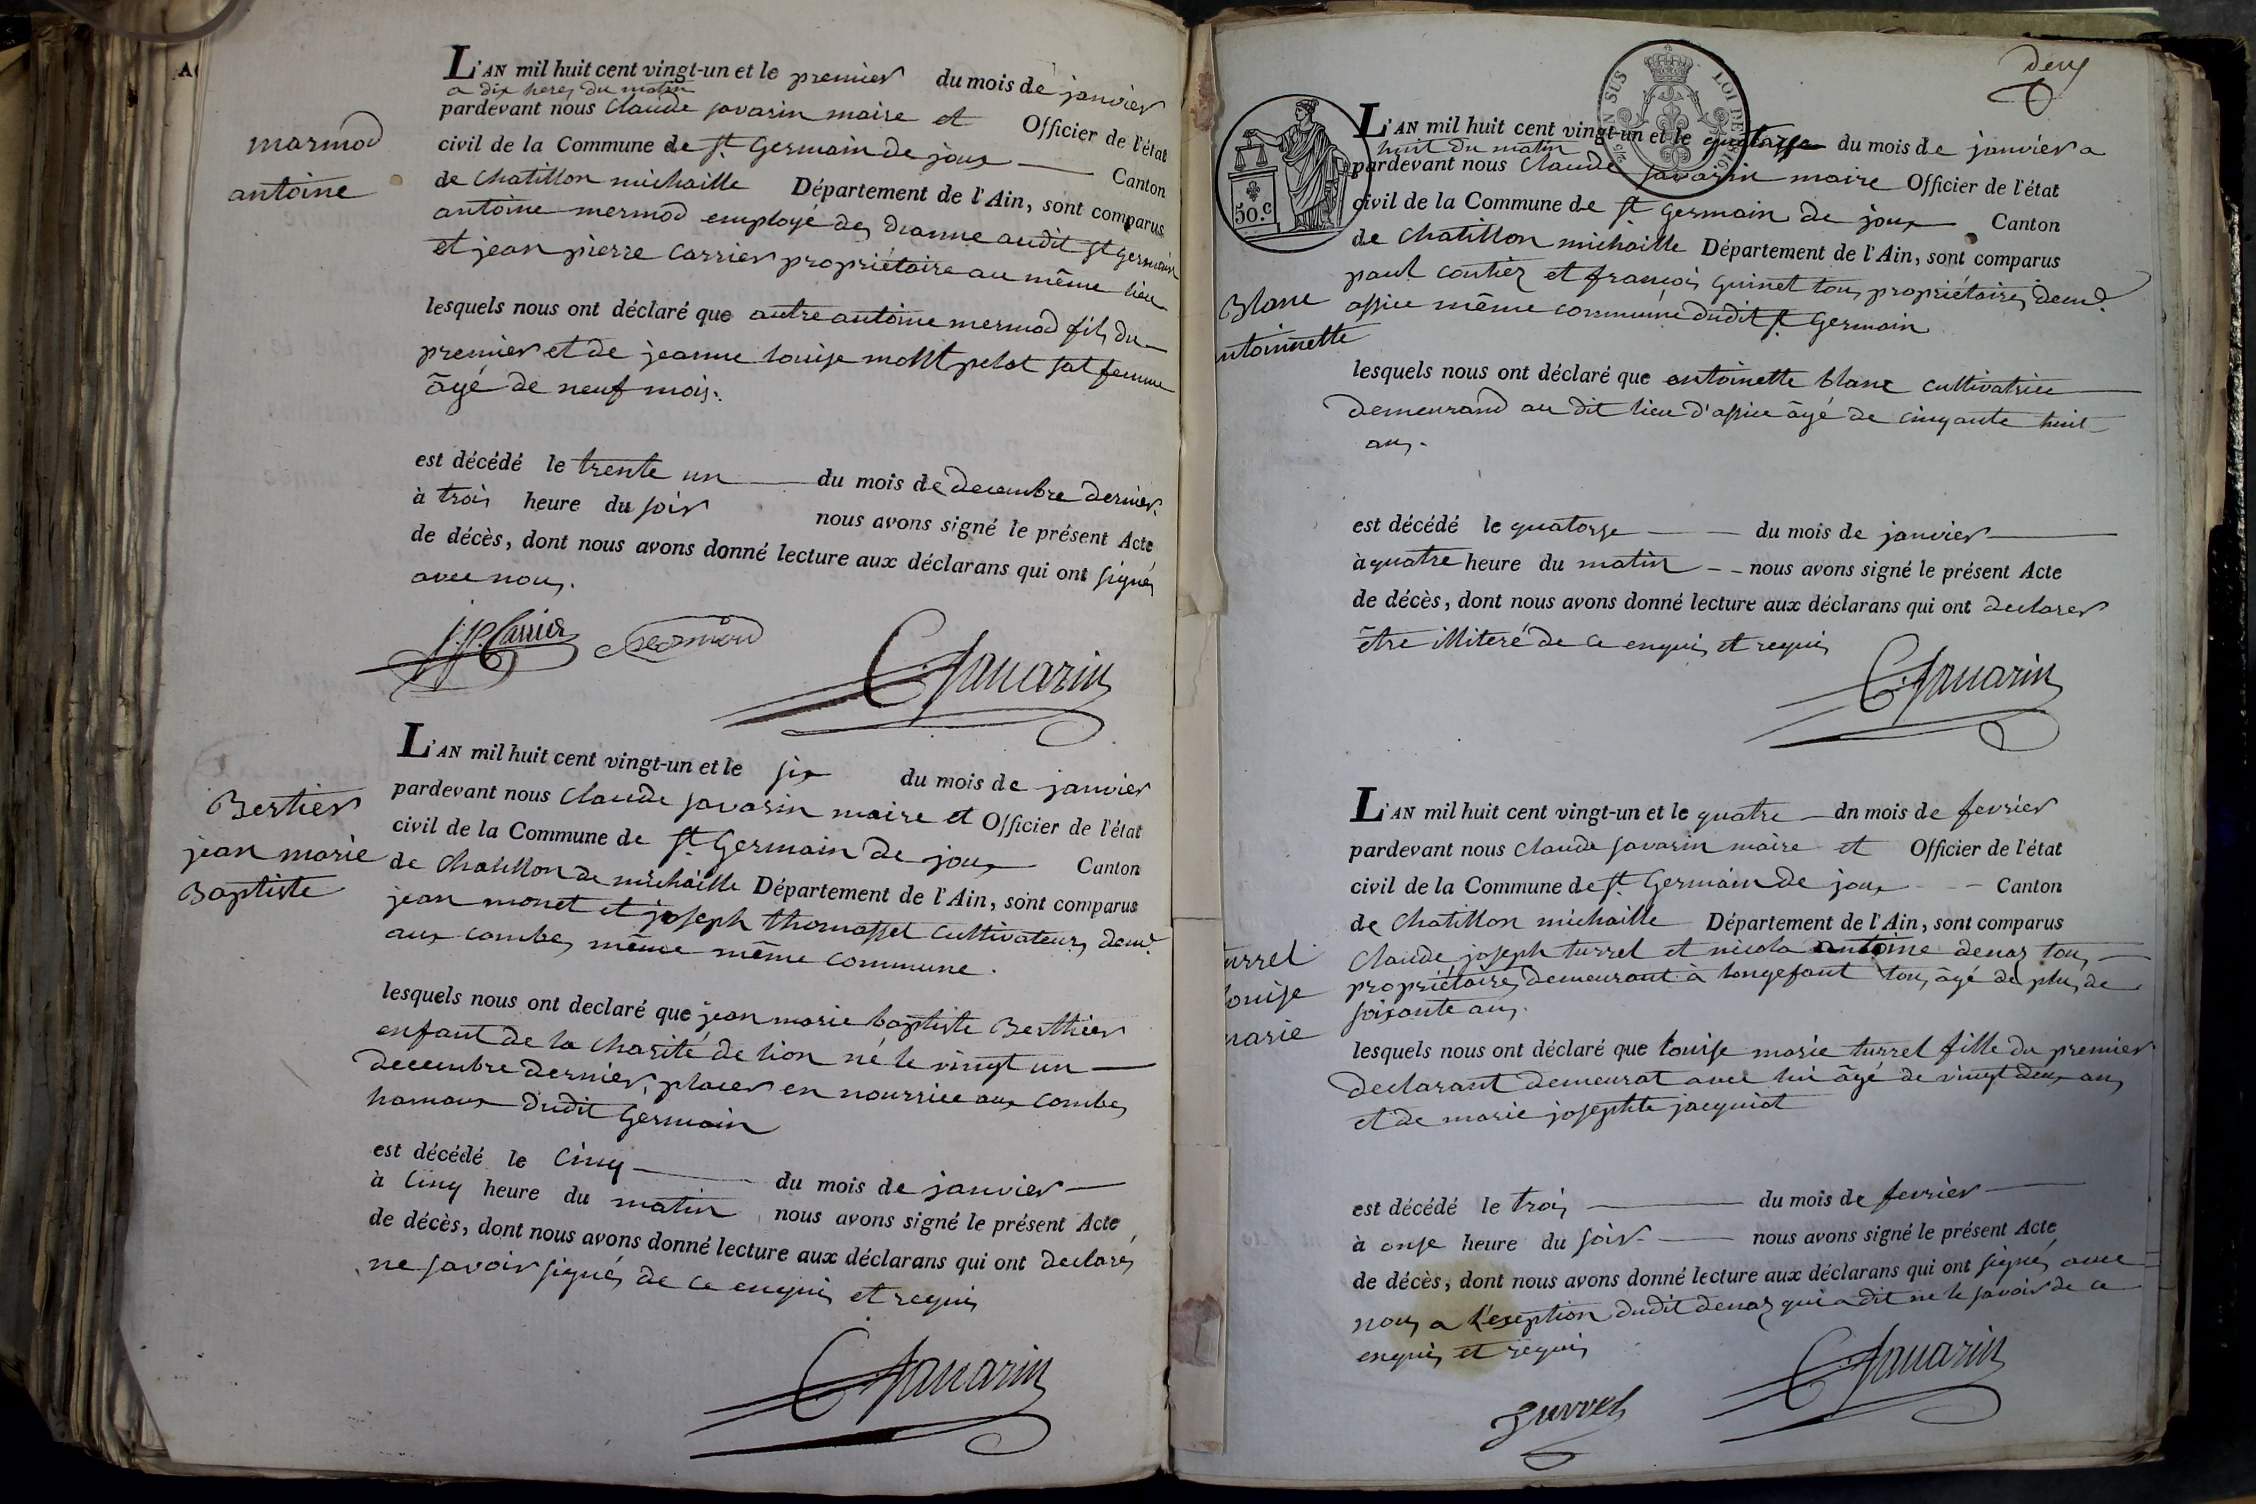 marmod
antoine
L'AN mil huit cent vingt-un et le premier du mois de janvier
a dix heres du matin
pardevant nous Claude savarin maire et Officier de l'état
civil de la Commune de St Germain de joux Canton
de Chatillon michaille Département de l'Ain, sont comparus
antoine mermod employé des douanne audit st germain
et jean pierre carrier propriétaire au même lieu
lesquels nous ont déclaré que autre antoine mermod fils du
premier et de jeanne louise montpelat sat femme
âgé de neuf mois.
est décédé le trente un du mois de decembre dernier.
à trois heure du soir nous avons signé le présent Acte
de décès, dont nous avons donné lecture aux déclarans qui ont signés
avec nous.
J. P. Carrier Mermod
C. Savarin
Bertier
jean marie
Baptiste
L'AN mil huit cent vingt-un et le six du mois de janvier
pardevant nous Claude savarin maire et Officier de l'état
civil de la Commune de St Germain de joux Canton
de Chatillon de michaille Département de l'Ain, sont comparus
jean monet et joseph thomasset cultivateurs demt
aux combes même même commune.
lesquels nous ont declaré que jean marie baptiste Berthier
enfant de la charité de lion né le vingt un
decembre dernier, placer en nourrice aux combes
hamaux dudit Germain
est décédé le Cinq du mois de janvier
à Cinq heure du matin nous avons signé le présent Acte
de décès, dont nous avons donné lecture aux déclarans qui ont declarés
ne savoir signés de ce enquis et requis
C. Savarin
deux
SUS LOI DE 1816
50. C
Blanc
antoinette
L'AN mil huit cent vingt-un et le quatorze du mois de janvier a
huit du matin
pardevant nous Claude savarin maire Officier de l'état
civil de la Commune de St Germain de joux Canton
de Chatillon michaille Département de l'Ain, sont comparus
paul coutier et françois guinet tous propriétaires demt
assice même commune dudit St Germain
lesquels nous ont déclaré que antoinette blanc cultivatrice
demeurand au dit lieu d'assice âgé de cinquante huit
ans.
est décédé le quatorze du mois de janvier
à quatre heure du matin nous avons signé le présent Acte
de décès, dont nous avons donné lecture aux déclarans qui ont declarer
être illiteré de ce enquis et requis
C. Savarin
turrel
louise
marie
L'AN mil huit cent vingt-un et le quatre dn mois de fevrier
pardevant nous Claude savarin maire et Officier de l'état
civil de la Commune de St Germain de joux Canton
de Chatillon michaille Département de l'Ain, sont comparus
Claude joseph turrel et nicola antoine denaz tous
propriétaires demeurant à longefant tous âgé de plus de
soixante ans.
lesquels nous ont déclaré que louise marie turrel fille du premier
declarant demeurat avec lui âgé de vingt deux ans
et de marie josephte jacquiot
est décédé le trois du mois de fevrier
à onse heure du soir nous avons signé le présent Acte
de décès, dont nous avons donné lecture aux déclarans qui ont signés avec
nous a l'exeption dudit denaz qui a dit ne le savoir de ce
enquis et requis
Turrel
C. Savarin